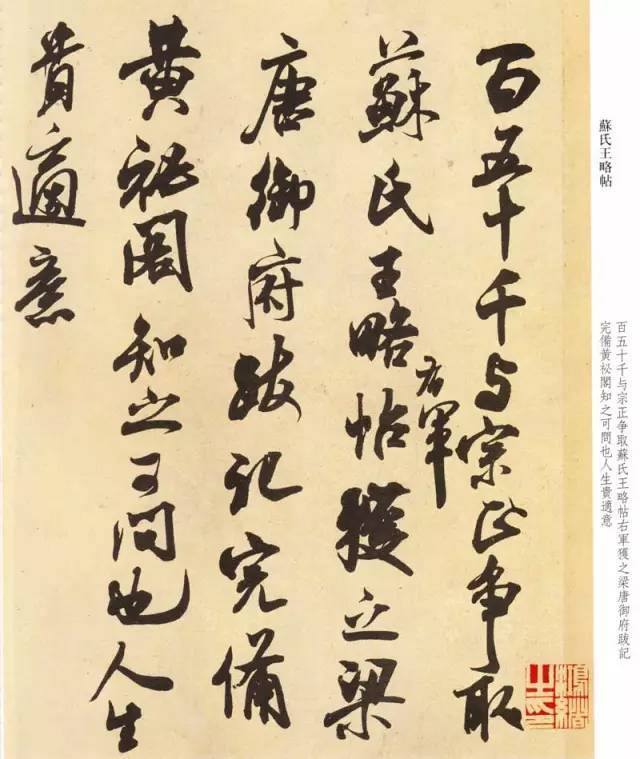 蘇氏王略帖
百五十千与宗正争取蘇氏王略帖右軍獲之梁唐御府跋記
完備黃祕閣知之可問也人生貴適意
百五十千与宗正争取
蘇氏王略帖右軍獲之梁
唐御府跋記完備
黃祕閣知之可問也人生
貴適意